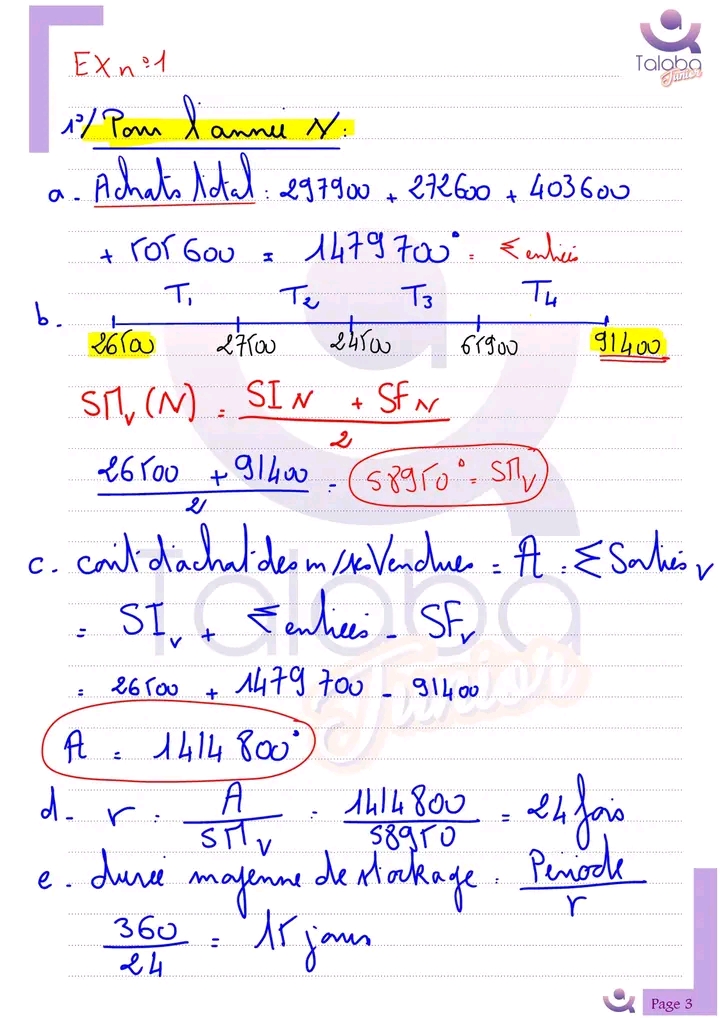 Taloba
Junior
EX n°1
1°/ Pour l'année N:
a - Achats total : 297900 + 272600 + 403600
+ 505600 = 1479700° = Σ entrées
T1 T2 T3 T4
b.
26500 27500 24500 65900 91400
SMv (N) = SI N + SF N / 2
26500 + 91400 / 2 = 58950° = SMv
c - coût d'achat des m/ses Vendues = A = Σ Sorties v
= SIv + Σ entrées - SFv
= 26500 + 1479 700 - 91400
A = 1414 800°
d - r = A / SMv = 1414800 / 58950 = 24 fois
e - durée moyenne de stockage = Periode / r
360 / 24 = 15 jours
Taloba
Junior
Page 3